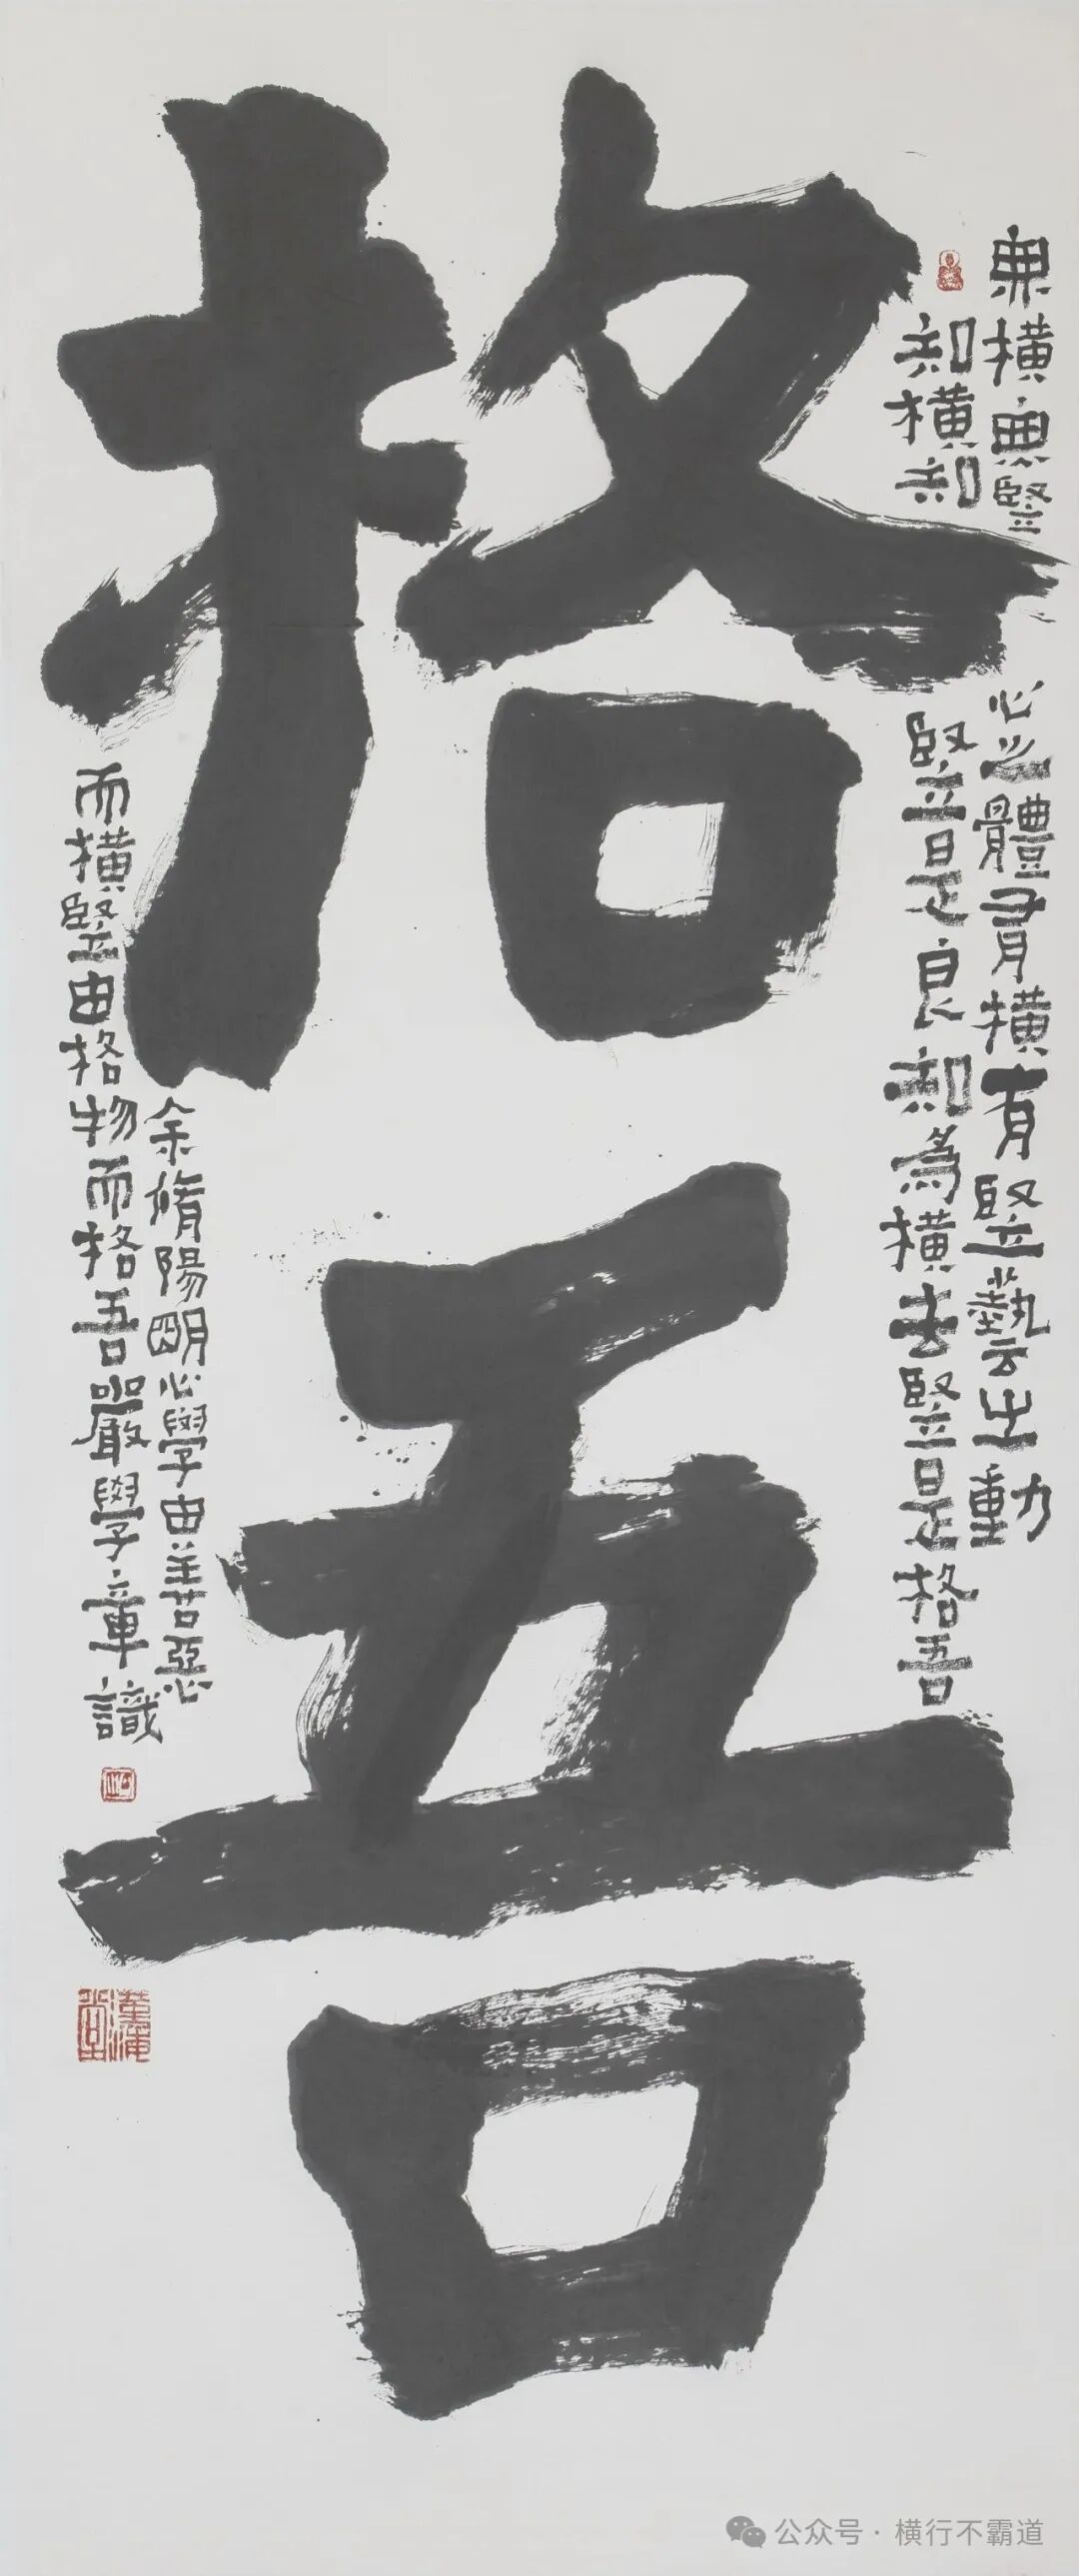 格吾
無橫無豎心之體有橫有豎藝之動
知橫知豎是良知為橫去豎是格吾
余脩陽明心學由善惡
而橫豎由格物而格吾嚴學章識
公众号 · 横行不霸道